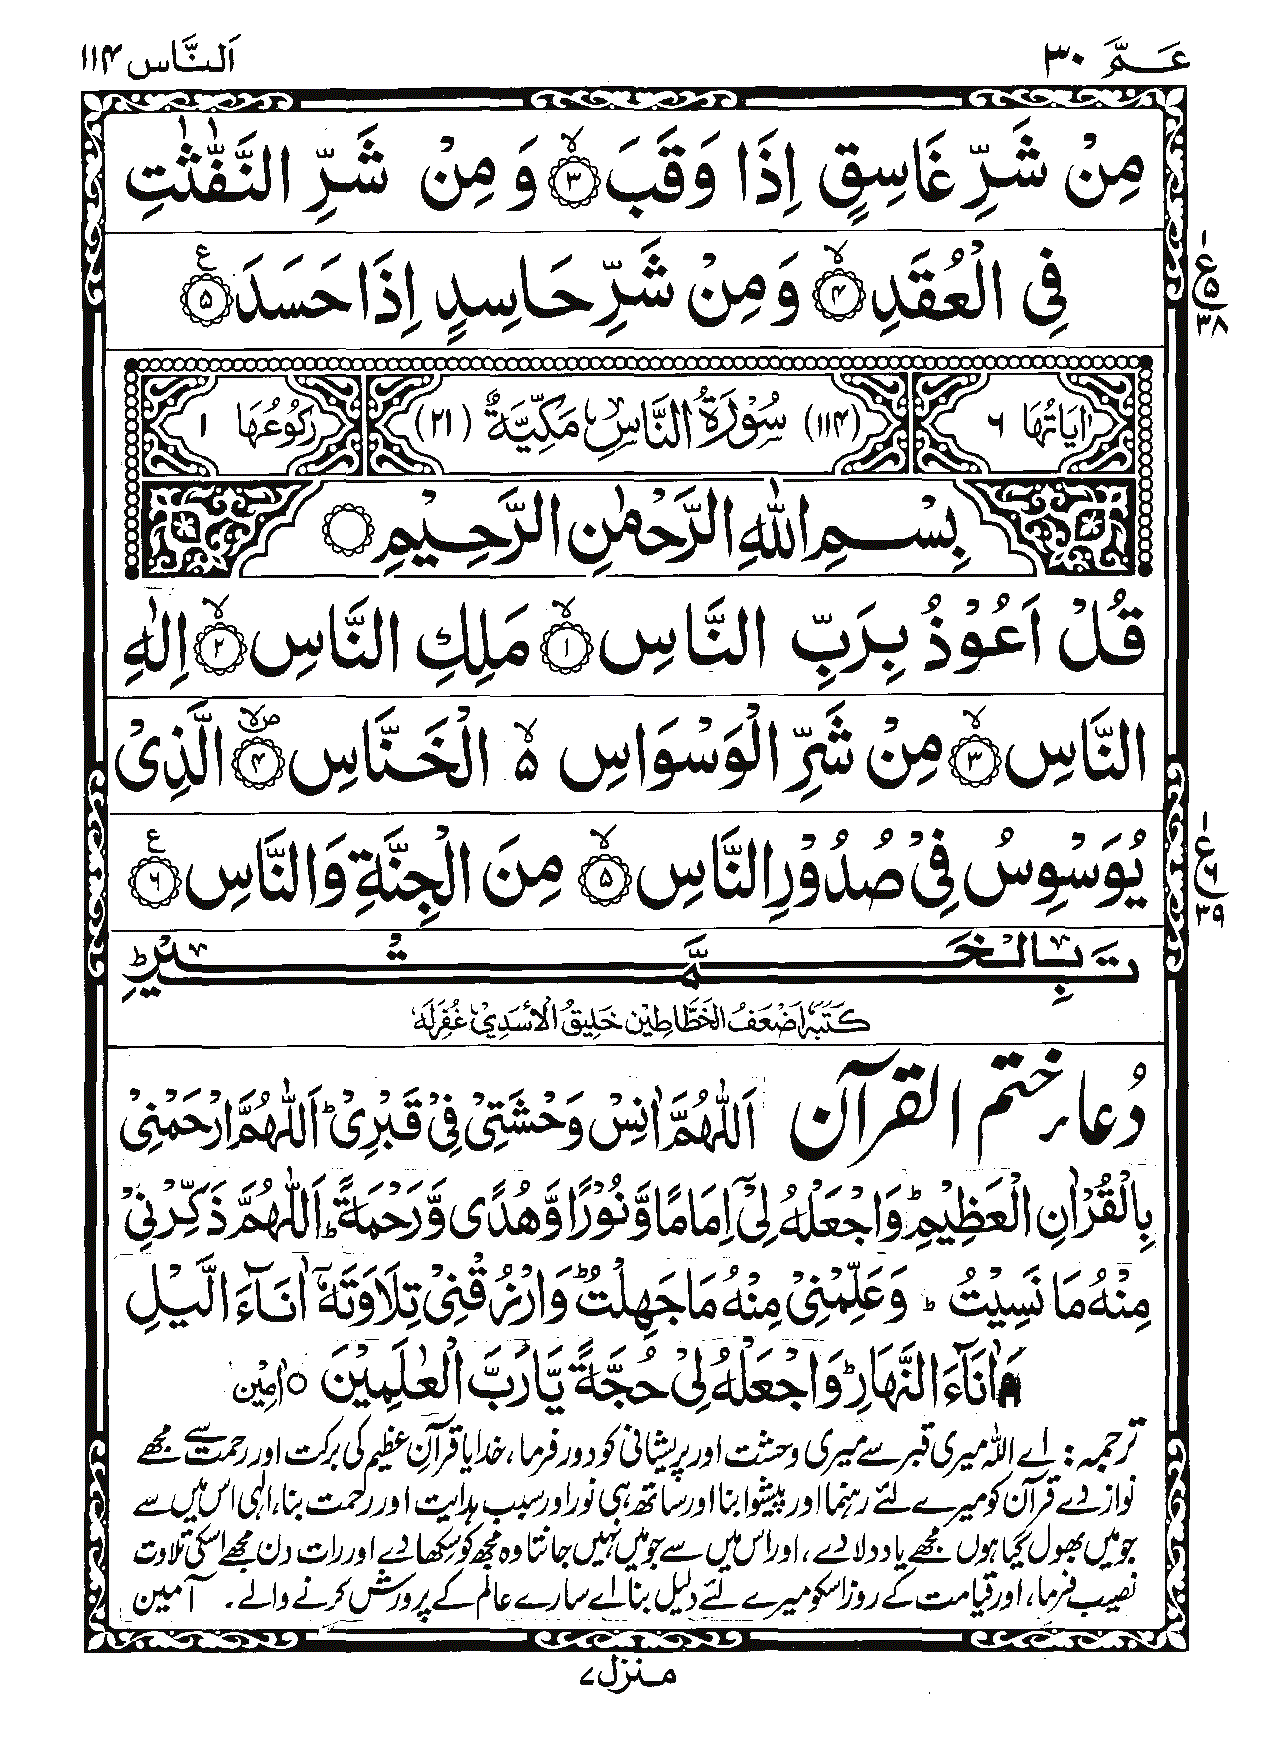 عَـمَّ ۳۰
اَلنَّاس ۱۱۴
مِنْ شَرِّ غَاسِقٍ اِذَا وَقَبَ ۙ﴿۳﴾ وَ مِنْ شَرِّ النَّفّٰثٰتِ
فِی الْعُقَدِ ۙ﴿۴﴾ وَ مِنْ شَرِّ حَاسِدٍ اِذَا حَسَدَ ﴿۵﴾ ع
۱
ع
۵
۳۸
اٰیَاتُهَا ۶
(۱۱۴) سُوْرَةُ النَّاسِ مَکِّیَّةٌ (۲۱)
رُکُوْعُهَا ۱
بِسْمِ اللهِ الرَّحْمٰنِ الرَّحِیْمِ
قُلْ اَعُوْذُ بِرَبِّ النَّاسِ ۙ﴿۱﴾ مَلِكِ النَّاسِ ۙ﴿۲﴾ اِلٰهِ
النَّاسِ ۙ﴿۳﴾ مِنْ شَرِّ الْوَسْوَاسِ ۬ۙ۵ الْخَنَّاسِ ۪ۙ﴿۴﴾ الَّذِیْ
یُوَسْوِسُ فِیْ صُدُوْرِ النَّاسِ ۙ﴿۵﴾ مِنَ الْجِنَّةِ وَ النَّاسِ ﴿۶﴾ ع
۱
ع
۶
۳۹
تَمَّتْ بِالْخَیْرِ ط
کَتَبَهٗ اَضْعَفُ الْخَطَّاطِیْنَ خَلِیْقُ الْاَسَدِیْ غُفِرَلَهٗ
دُعاءِ ختم القرآن
اَللّٰهُمَّ اٰنِسْ وَحْشَتِیْ فِیْ قَبْرِیْ ؕ اَللّٰهُمَّ ارْحَمْنِیْ
بِالْقُرْاٰنِ الْعَظِیْمِ ؕ وَاجْعَلْهُ لِیْ اِمَامًا وَّنُوْرًا وَّهُدًی وَّرَحْمَةً ؕ اَللّٰهُمَّ ذَکِّرْنِیْ
مِنْهُ مَا نَسِیْتُ ؕ وَعَلِّمْنِیْ مِنْهُ مَا جَهِلْتُ ؕ وَارْزُقْنِیْ تِلَاوَتَهٗٓ اٰنَآءَ الَّیْلِ
وَاٰنَآءَ النَّهَارِ ؕ وَاجْعَلْهُ لِیْ حُجَّةً یَّارَبَّ الْعٰلَمِیْنَ ○ اٰمِیْن
ترجمہ : اے اللہ میری قبر سے میری وحشت اور پریشانی کو دور فرما، خدایا قرآنِ عظیم کی برکت اور رحمت سے مجھے
نواز دے قرآن کو میرے لئے رہنما اور پیشوا بنا اور ساتھ ہی نور اور سبب ہدایت اور رحمت بنا، الٰہی اس میں سے
جو میں بھول گیا ہوں مجھے یاد دلا دے، اور اس میں سے جو میں نہیں جانتا وہ مجھ کو سکھا دے اور رات دن مجھے اسکی تلاوت
نصیب فرما، اور قیامت کے روز اسکو میرے لئے دلیل بنا اے سارے عالم کے پرورش کرنے والے ۔ آمین
منزل ۷